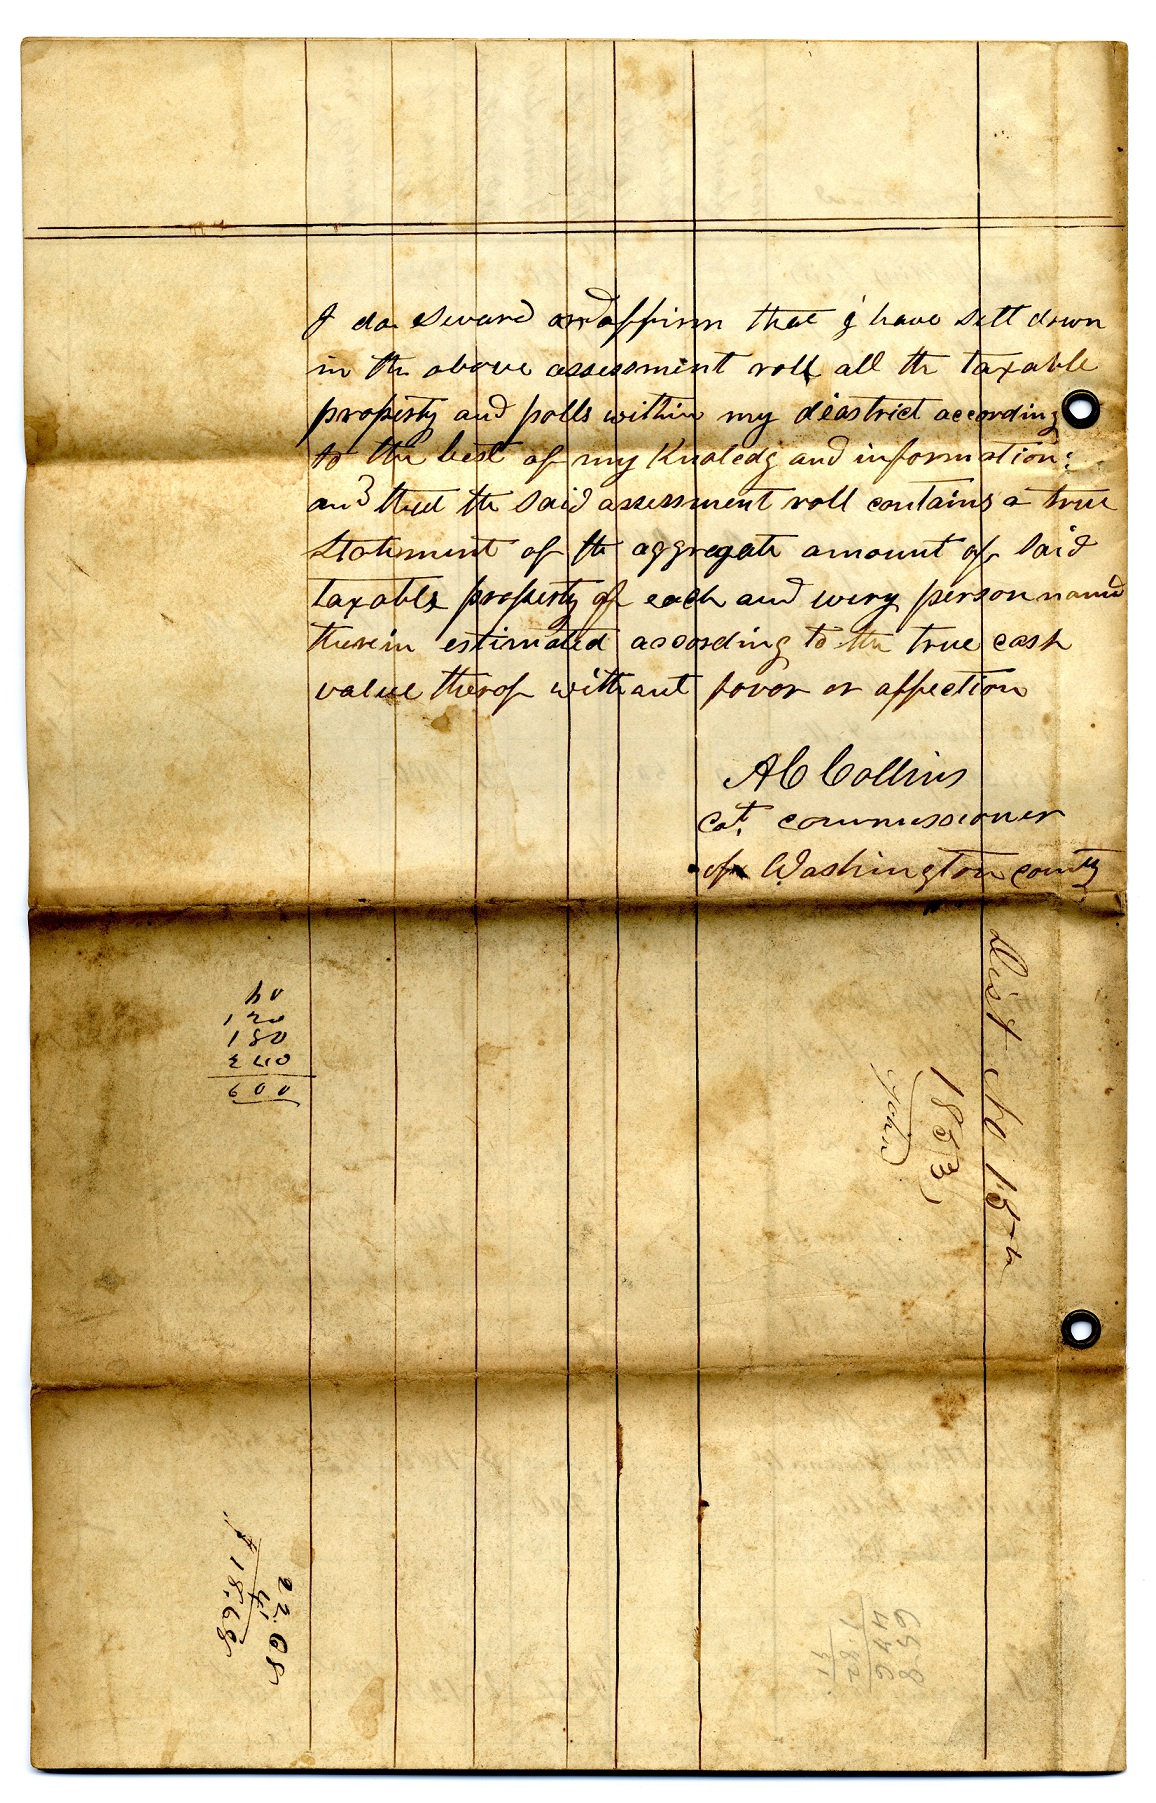 I do Sweard and affirm that i have Sett down
in the above assessment roll all the taxable
property and polls within my diastrict according
to the best of my Knoledg and information:
and that the Said assessment roll contains a true
Statement of the aggregate amount of Said
taxable property of each and every person named
therein estimated according to the true cash
value therof without favor or affection
A C Collins
Cot. commissioner
of Washington county
Dist No 15th
1853
40
120
150
340
600
22.68
4.
$18.68